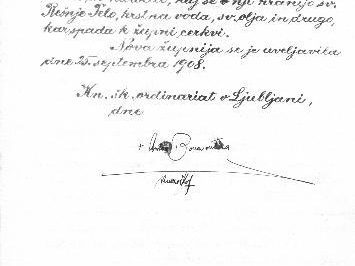 naj se v nji hranijo sv.
Rešnje Telo, krstna voda, sv. olja in drugo,
kar spada k župni cerkvi.
Nova župnija se je uveljavila
dne 25. septembra 1908.
Kn. šk. ordinariat v Ljubljani,
dne